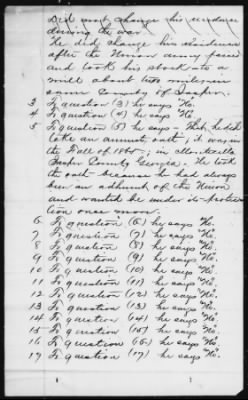 Did not change his residence
during the war.
He did change his residence
after the Union army passed
and took his stock to a
mill about two miles in
same County of Jasper.
3 To question (3) he says "No.
4 To question (4) he says "No.
5 To question (5) he says - That he did
take an amnesty oath; it was in
the Fall of 1865, in Monticello
Jasper County Georgia. He took
the oath because he had always
been an adherent of the Union
and wanted to be under its protec-
tion once more.
6. To question (6) he says "No".
7 To question (7) he says "No".
8 To question (8) he says "No".
9 To question (9) he says "No".
10 To question (10) he says "No".
11 To question (11) he says "No".
12 To question (12) he says "No".
13 To question (13) he says "No".
14 To question (14) he says "No".
15 To question (15) he says "No".
16 To question (16) he says "No".
17 To question (17) he says "No".